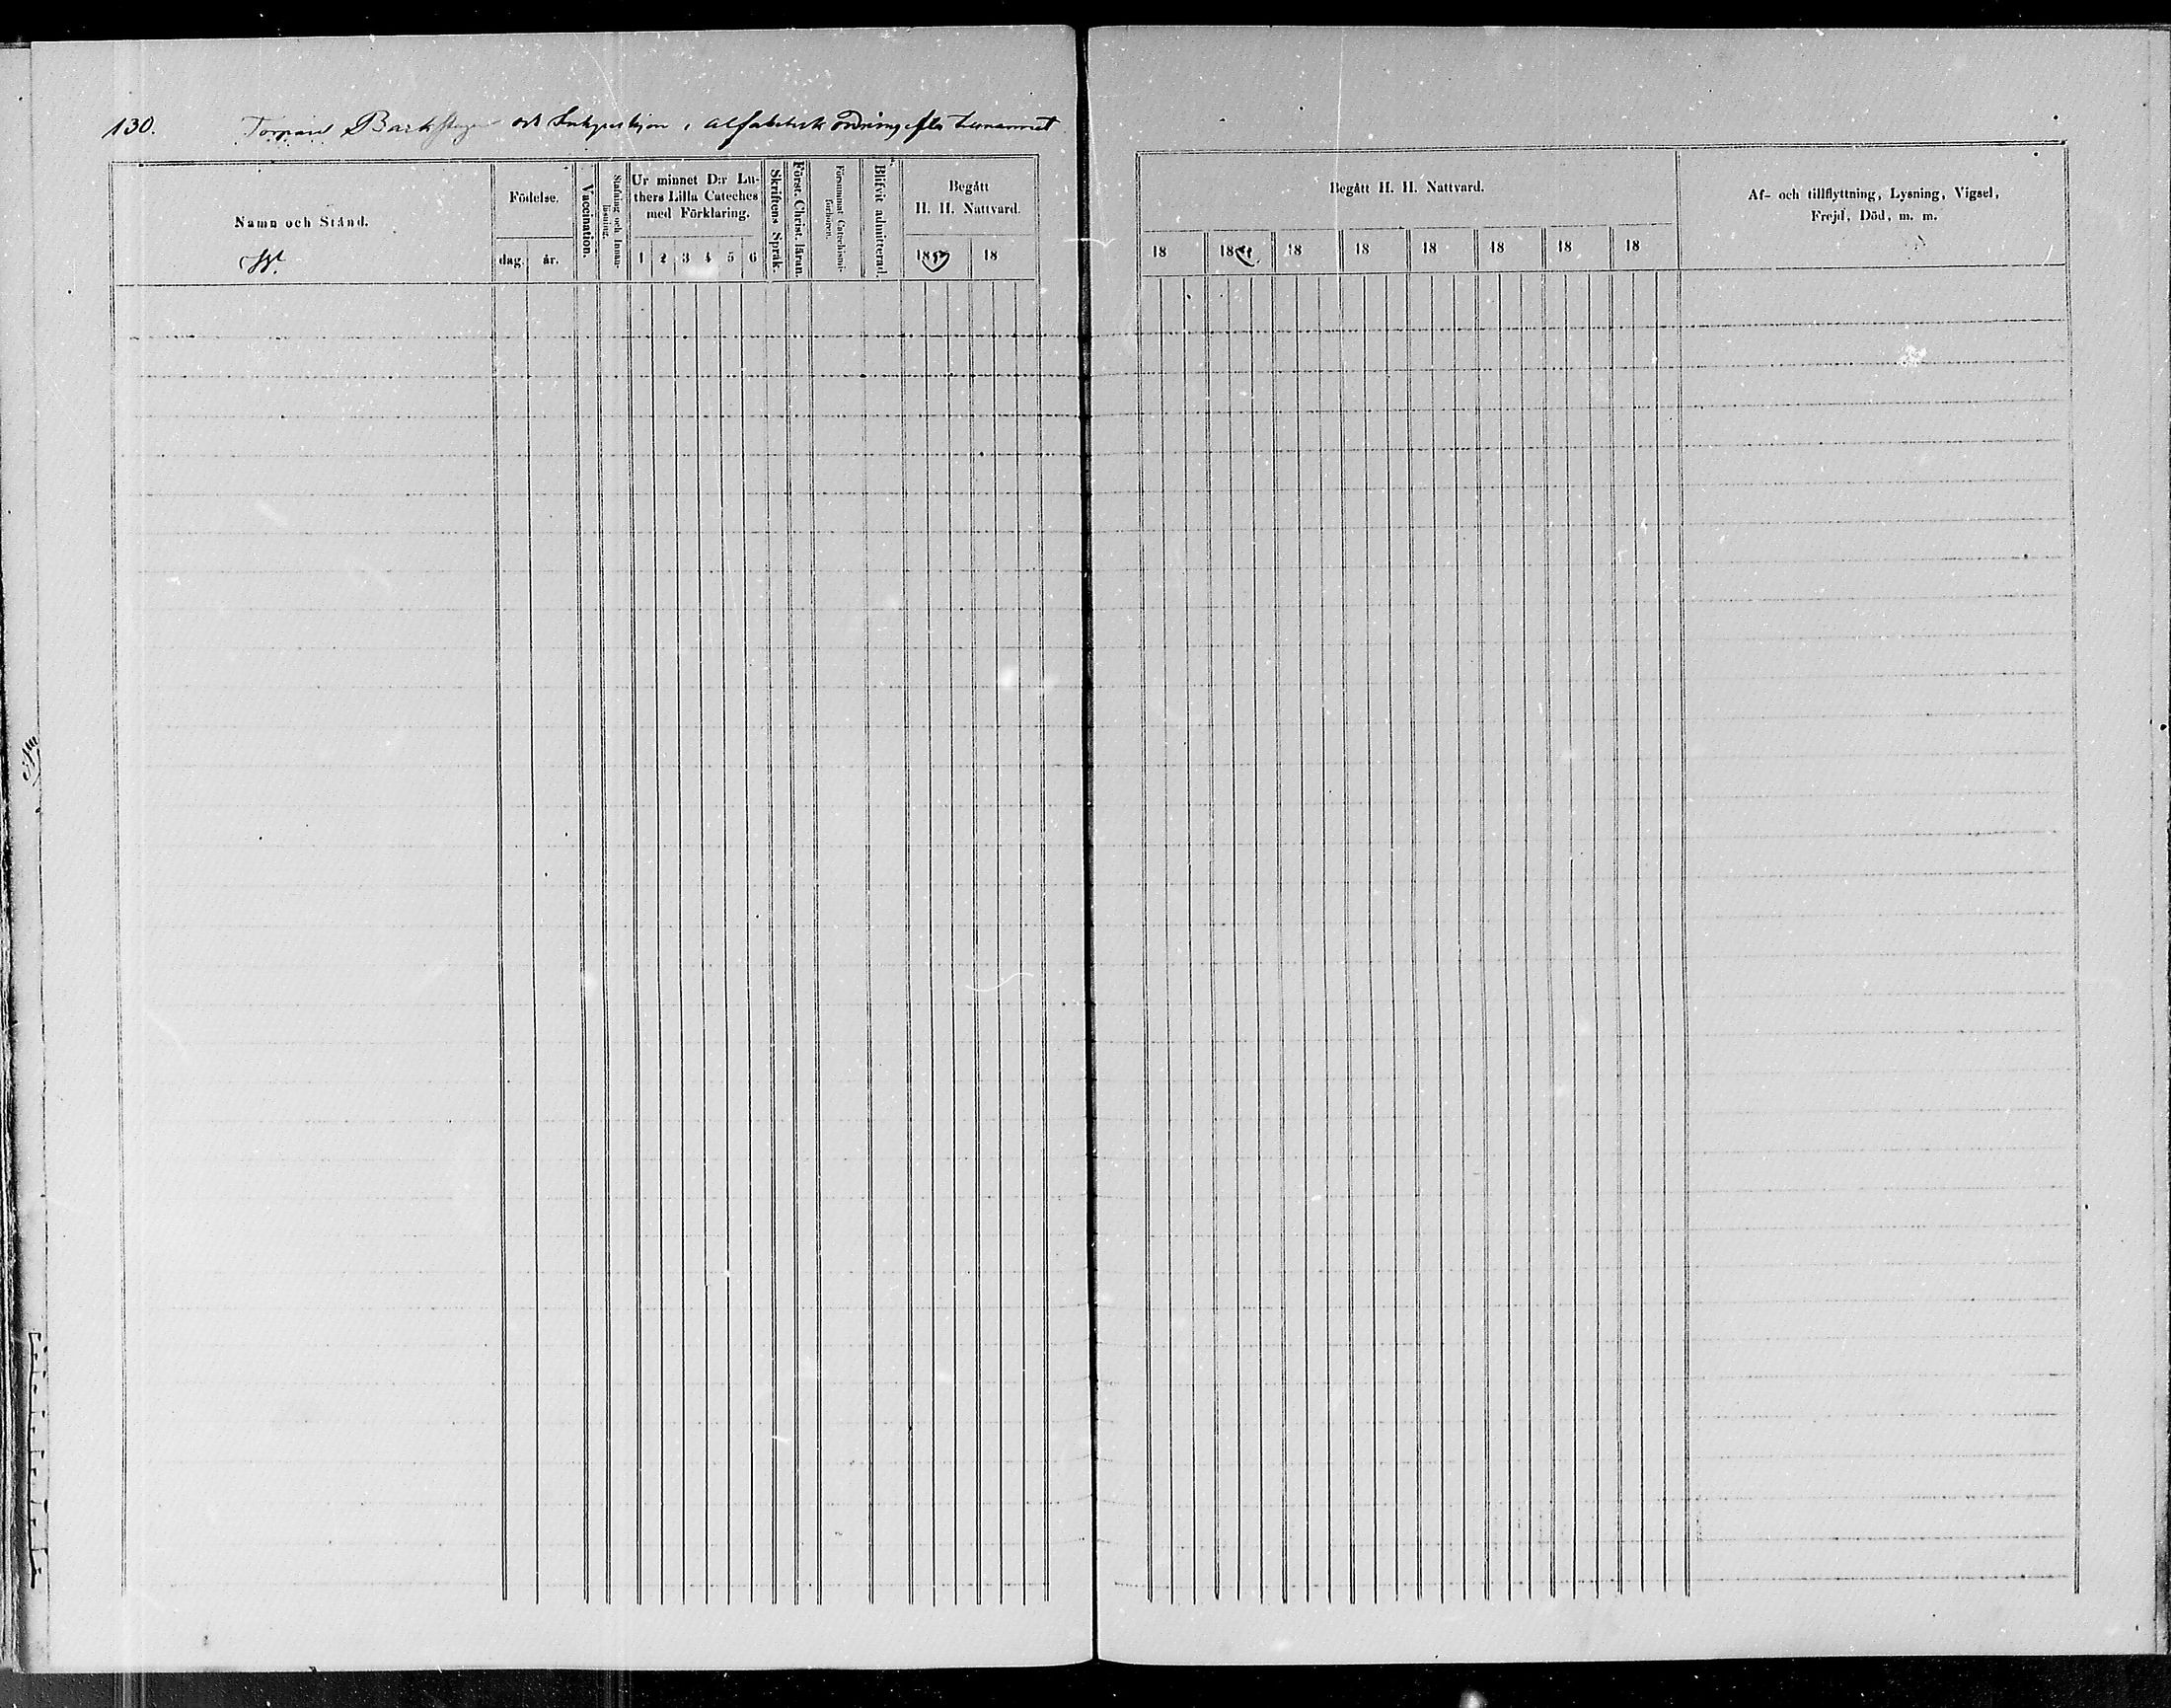 130. Torpare Backstugu och Inhyseshjon, i alfabetisk ordning efter tillnamnet
Namn och Stånd.
Födelse.
dag. år.
Vaccination.
Stafning och Innanläsning.
Ur minnet D:r Lu-
thers Lilla Cateches
med Förklaring.
1 2 3 4 5 6
Skriftens Språk.
Först. Christ. läran.
Försummat Catechismi-
förhören.
Blifvit admitterad.
Begått
H. H. Nattvard.
18 18
Begått H. H. Nattvard.
18 18 18 18 18 18 18 18
Af- och tillflyttning, Lysning, Vigsel,
Frejd, Död, m. m.